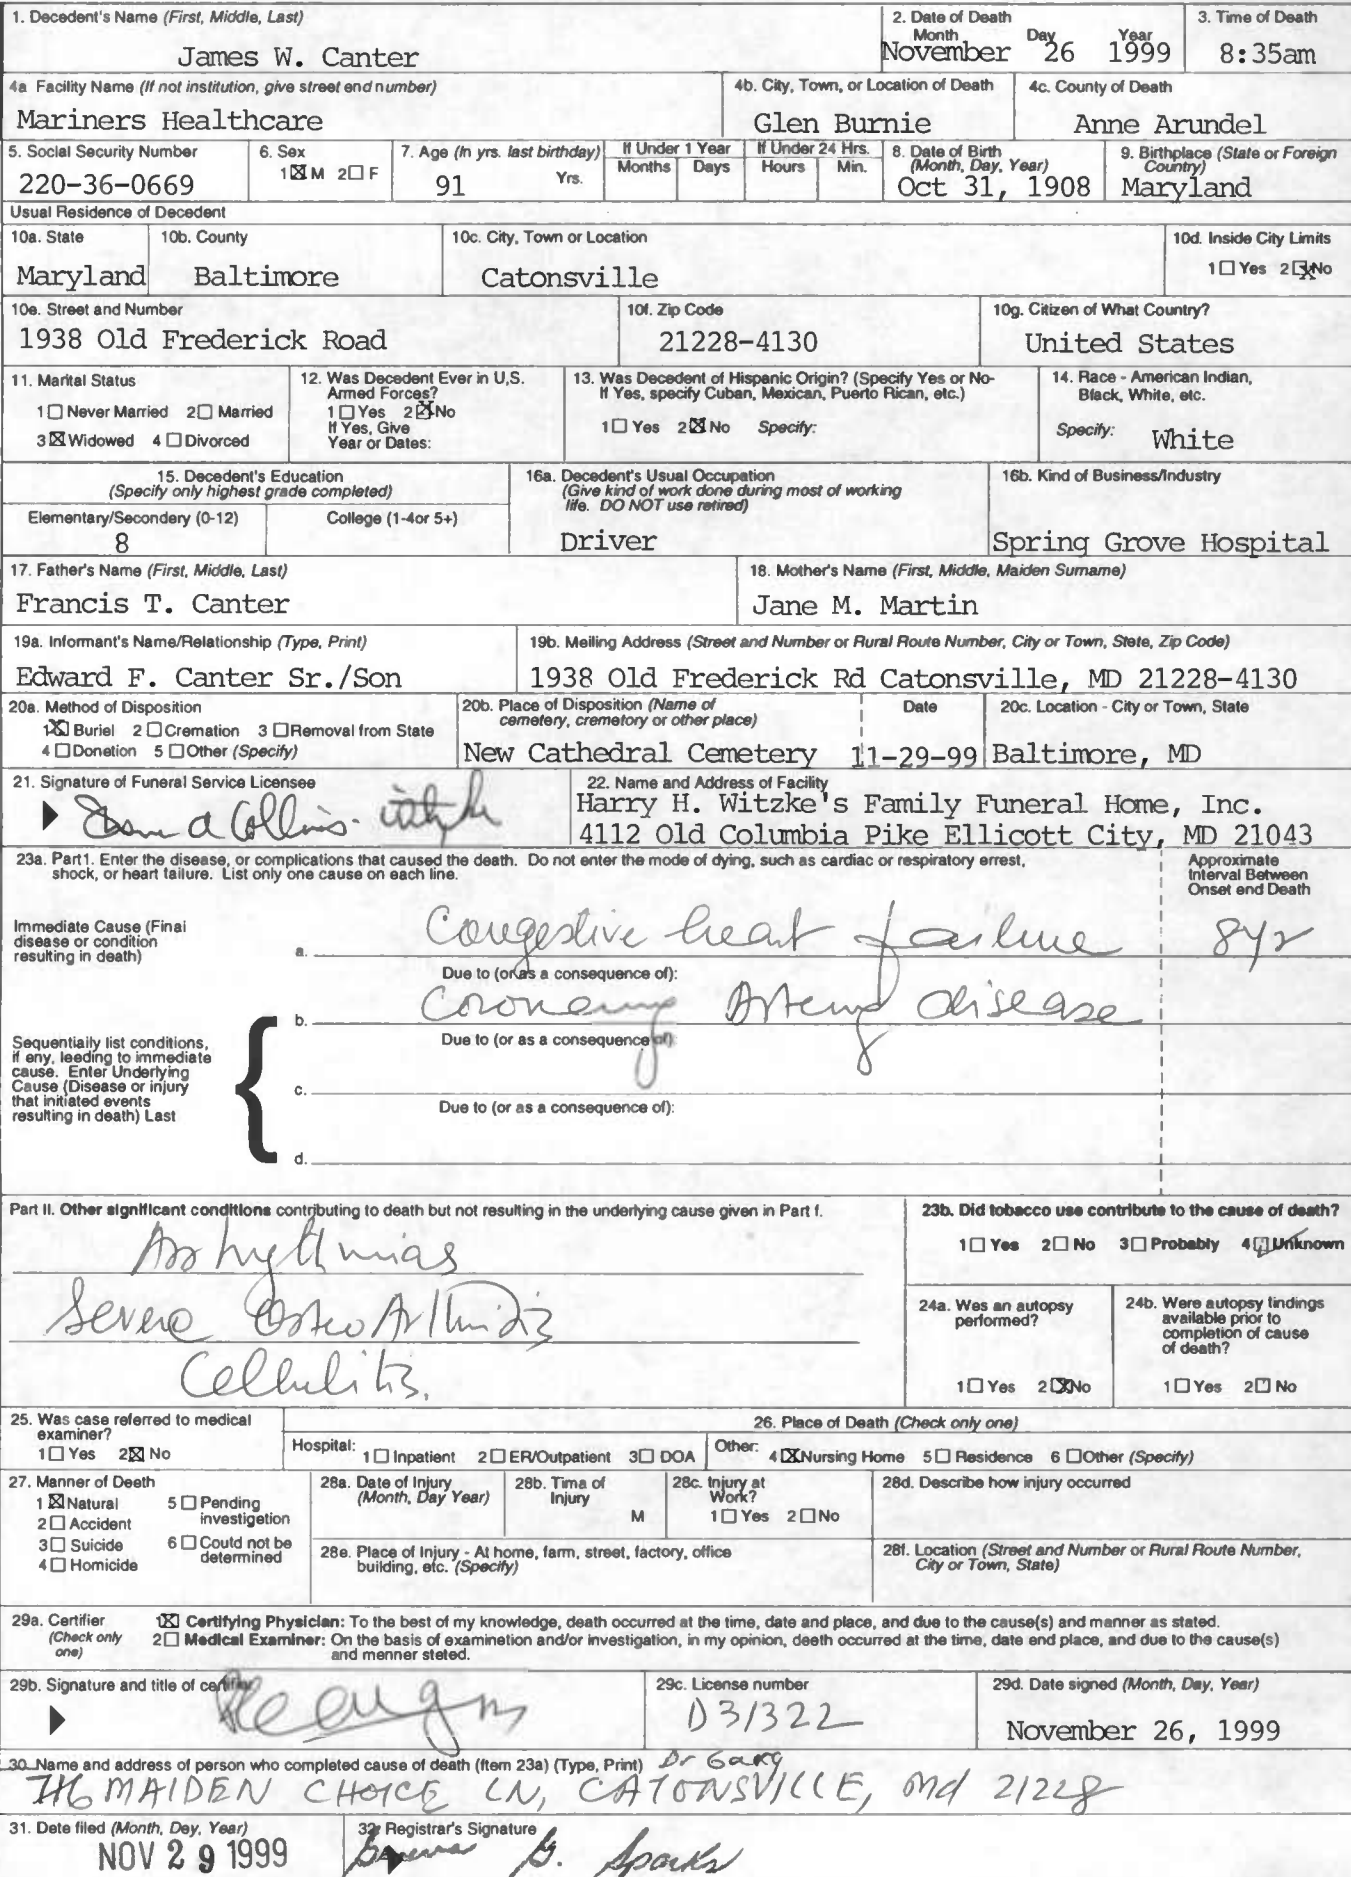 1. Decedent's Name (First, Middle, Last)
James W. Canter
2. Date of Death
Month Day Year
November 26 1999
3. Time of Death
8:35am
4a Facility Name (If not institution, give street end number)
Mariners Healthcare
4b. City, Town, or Location of Death
Glen Burnie
4c. County of Death
Anne Arundel
5. Social Security Number
220-36-0669
6. Sex
1☒ M 2☐ F
7. Age (In yrs. last birthday)
91 Yrs.
If Under 1 Year
Months Days
If Under 24 Hrs.
Hours Min.
8. Date of Birth
(Month, Day, Year)
Oct 31, 1908
9. Birthplace (State or Foreign
Country)
Maryland
Usual Residence of Decedent
10a. State
Maryland
10b. County
Baltimore
10c. City, Town or Location
Catonsville
10d. Inside City Limits
1☐ Yes 2☒ No
10e. Street and Number
1938 Old Frederick Road
10f. Zip Code
21228-4130
10g. Citizen of What Country?
United States
11. Marital Status
1☐ Never Married 2☐ Married
3☒ Widowed 4☐ Divorced
12. Was Decedent Ever in U.S.
Armed Forces?
1☐ Yes 2☒ No
If Yes, Give
Year or Dates:
13. Was Decedent of Hispanic Origin? (Specify Yes or No-
If Yes, specify Cuban, Mexican, Puerto Rican, etc.)
1☐ Yes 2☒ No Specify:
14. Race - American Indian,
Black, White, etc.
Specify: White
15. Decedent's Education
(Specify only highest grade completed)
Elementary/Secondery (0-12)
8
College (1-4or 5+)
16a. Decedent's Usual Occupation
(Give kind of work done during most of working
life. DO NOT use retired)
Driver
16b. Kind of Business/Industry
Spring Grove Hospital
17. Father's Name (First, Middle, Last)
Francis T. Canter
18. Mother's Name (First, Middle, Maiden Surname)
Jane M. Martin
19a. Informant's Name/Relationship (Type, Print)
Edward F. Canter Sr./Son
19b. Meiling Address (Street and Number or Rural Route Number, City or Town, Stete, Zip Code)
1938 Old Frederick Rd Catonsville, MD 21228-4130
20a. Method of Disposition
1☒ Buriel 2☐ Cremation 3☐ Removal from State
4☐ Donetion 5☐ Other (Specify)
20b. Place of Disposition (Name of
cemetery, cremetory or other place)
New Cathedral Cemetery
Date
11-29-99
20c. Location - City or Town, State
Baltimore, MD
21. Signature of Funeral Service Licensee
Collins
22. Name and Address of Facility
Harry H. Witzke's Family Funeral Home, Inc.
4112 Old Columbia Pike Ellicott City, MD 21043
23a. Part1. Enter the disease, or complications that caused the death. Do not enter the mode of dying, such as cardiac or respiratory errest,
shock, or heart failure. List only one cause on each line.
Approximate
Interval Between
Onset end Death
Immediate Cause (Final
disease or condition
resulting in death)
a. Congestive heart failure 8yr
Due to (or as a consequence of):
b. Coronary Artery disease
Due to (or as a consequence of):
Sequentially list conditions,
if eny, leeding to immediate
cause. Enter Underlying
Cause (Disease or injury
that initiated events
resulting in death) Last
c.
Due to (or as a consequence of):
d.
Part II. Other significant conditions contributing to death but not resulting in the underlying cause given in Part I.
Arrhythmias
Severe OsteoArthritis
Cellulitis.
23b. Did tobacco use contribute to the cause of death?
1☐ Yes 2☐ No 3☐ Probably 4☑ Unknown
24a. Wes an autopsy
performed?
1☐ Yes 2☒ No
24b. Were autopsy findings
available prior to
completion of cause
of death?
1☐ Yes 2☐ No
25. Was case referred to medical
examiner?
1☐ Yes 2☒ No
26. Place of Death (Check only one)
Hospital: 1☐ Inpatient 2☐ ER/Outpatient 3☐ DOA
Other: 4☒ Nursing Home 5☐ Residence 6☐ Other (Specify)
27. Manner of Deeth
1☒ Natural
2☐ Accident
3☐ Suicide
4☐ Homicide
5☐ Pending
investigetion
6☐ Could not be
determined
28a. Date of Injury
(Month, Day Year)
28b. Tima of
Injury
M
28c. Injury at
Work?
1☐ Yes 2☐ No
28d. Describe how injury occurred
28e. Place of Injury - At home, farm, street, factory, office
building, etc. (Specify)
28f. Location (Street and Number or Rural Route Number,
City or Town, State)
29a. Certifier
(Check only
one)
1☒ Certifying Physician: To the best of my knowledge, death occurred at the time, date and place, and due to the cause(s) and manner as stated.
2☐ Medical Examiner: On the basis of examinetion and/or investigation, in my opinion, deeth occurred at the time, date end place, and due to the cause(s)
and menner steted.
29b. Signature and title of certifier
29c. License number
D31322
29d. Date signed (Month, Day, Year)
November 26, 1999
30. Name and address of person who completed cause of death (Item 23a) (Type, Print) Dr Garg
716 MAIDEN CHOICE LN, CATONSVILLE, Md 21228
31. Dete filed (Month, Dey, Year)
NOV 29 1999
32. Registrar's Signature
G. Sparks